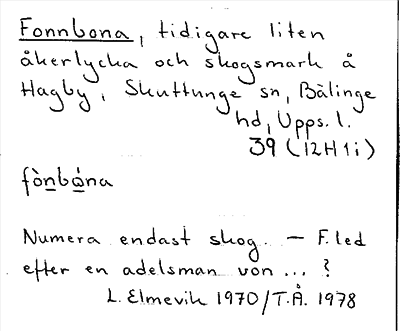 Fonnbona, tidigare liten
åkerlycka och skogsmark å
Hagby, Skuttunge sn, Bälinge
hd, Upps. l.
39 (12H1i)
fònbå̀na
Numera endast skog. – F.led
efter en adelsman von ... ?
L. Elmevik 1970/T.Å. 1978